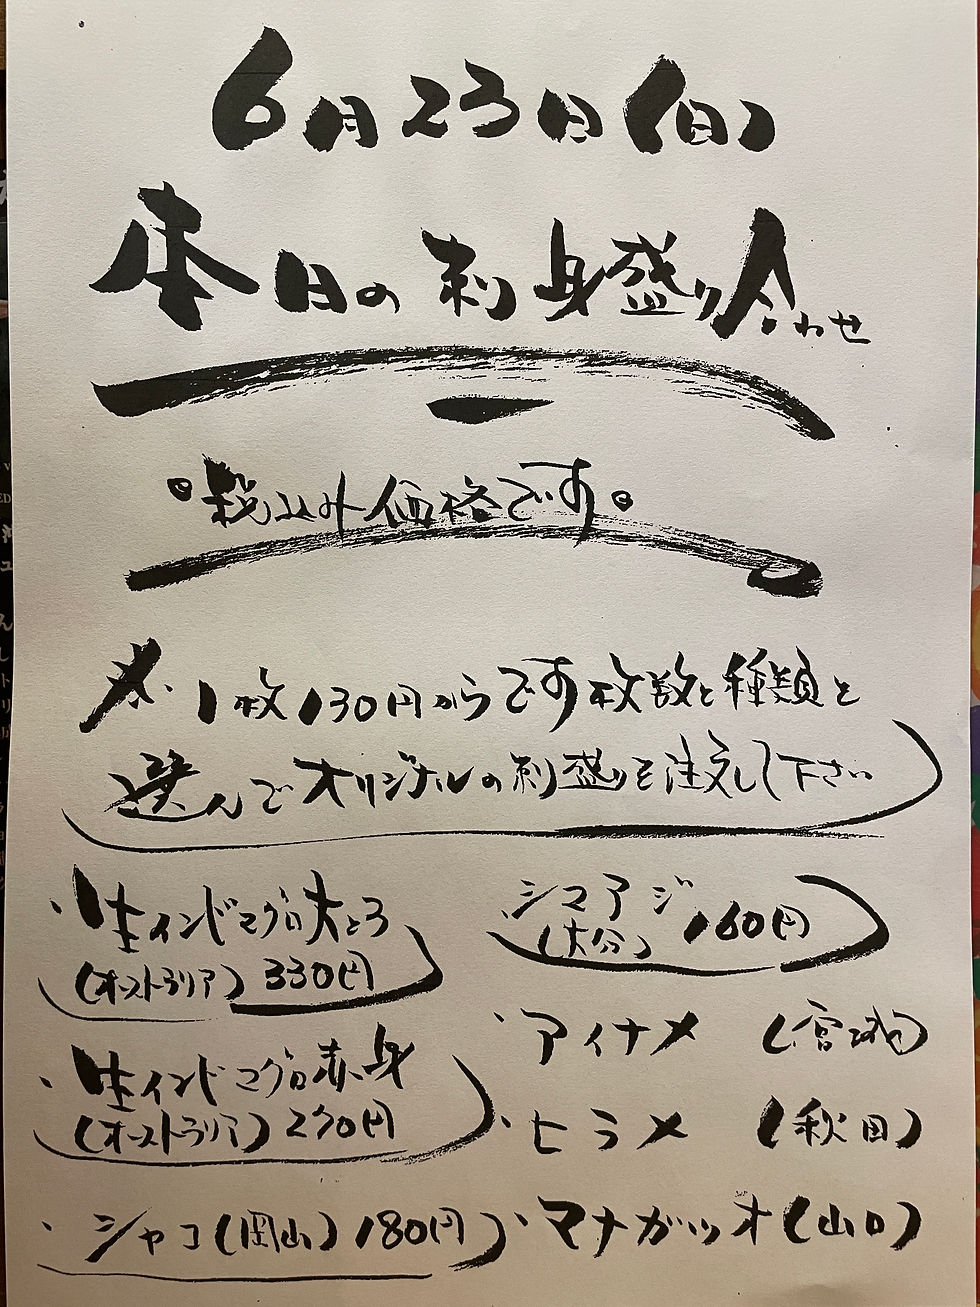 6月23日(日)
本日の刺身盛り合わせ
税込み価格です
〆.1枚130円からです枚数と種類と
選んでオリジナルの刺盛りを注文して下さい
・生インドマグロ大とろ
(オーストラリア) 330円
・生インドマグロ赤身
(オーストラリア) 270円
・シャコ(岡山) 180円
・シマアジ
(大分) 160円
・アイナメ (宮城)
・ヒラメ (秋田)
・マナガツオ(山口)